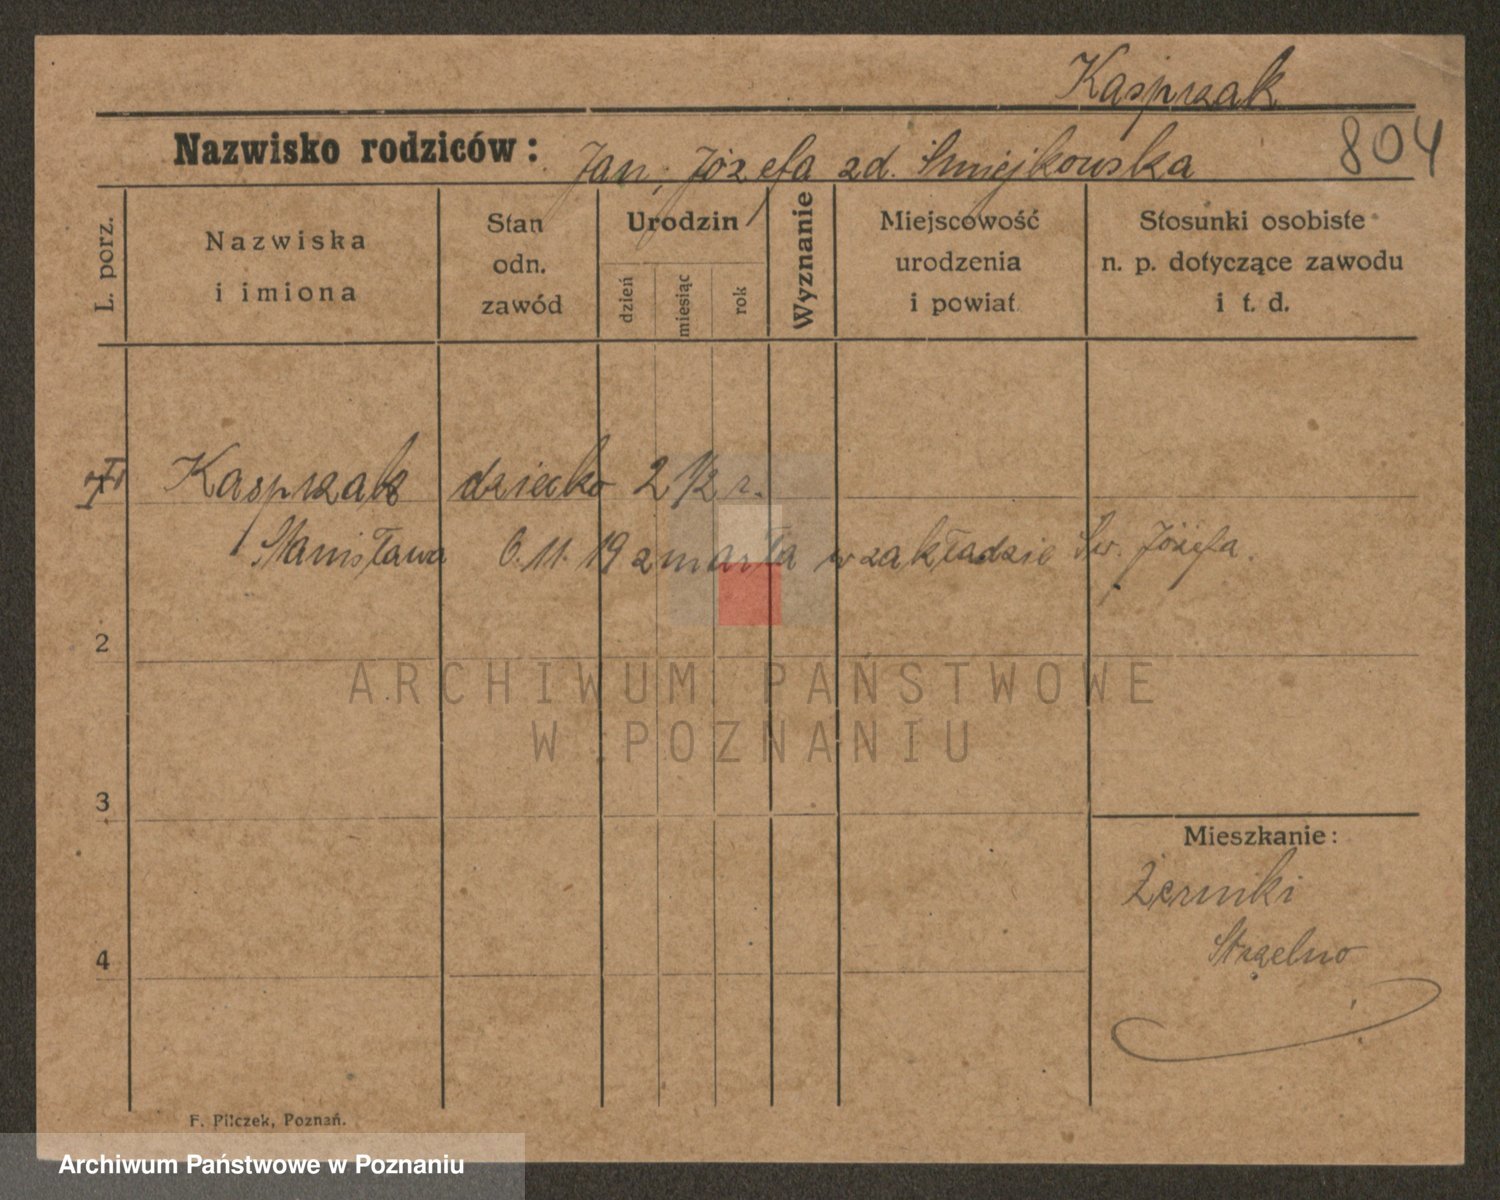 Kasprzak
Nazwisko rodziców: Jan, Józefa zd. Śmiejkowska 804
L. porz.
Nazwiska i imiona
Stan odn. zawód
Urodzin
dzień
miesiąc
rok
Wyznanie
Miejscowość urodzenia i powiat
Stosunki osobiste n. p. dotyczące zawodu i t. d.
Kasprzak dziecko 2 1/2 r.
Stanisława 6. 11. 19 zmarła w zakładzie Św. Józefa.
2
3
4
Mieszkanie:
Żerniki
Strzelno
F. Pilczek, Poznań.
ARCHIWUM PAŃSTWOWE
W POZNANIU
Archiwum Państwowe w Poznaniu